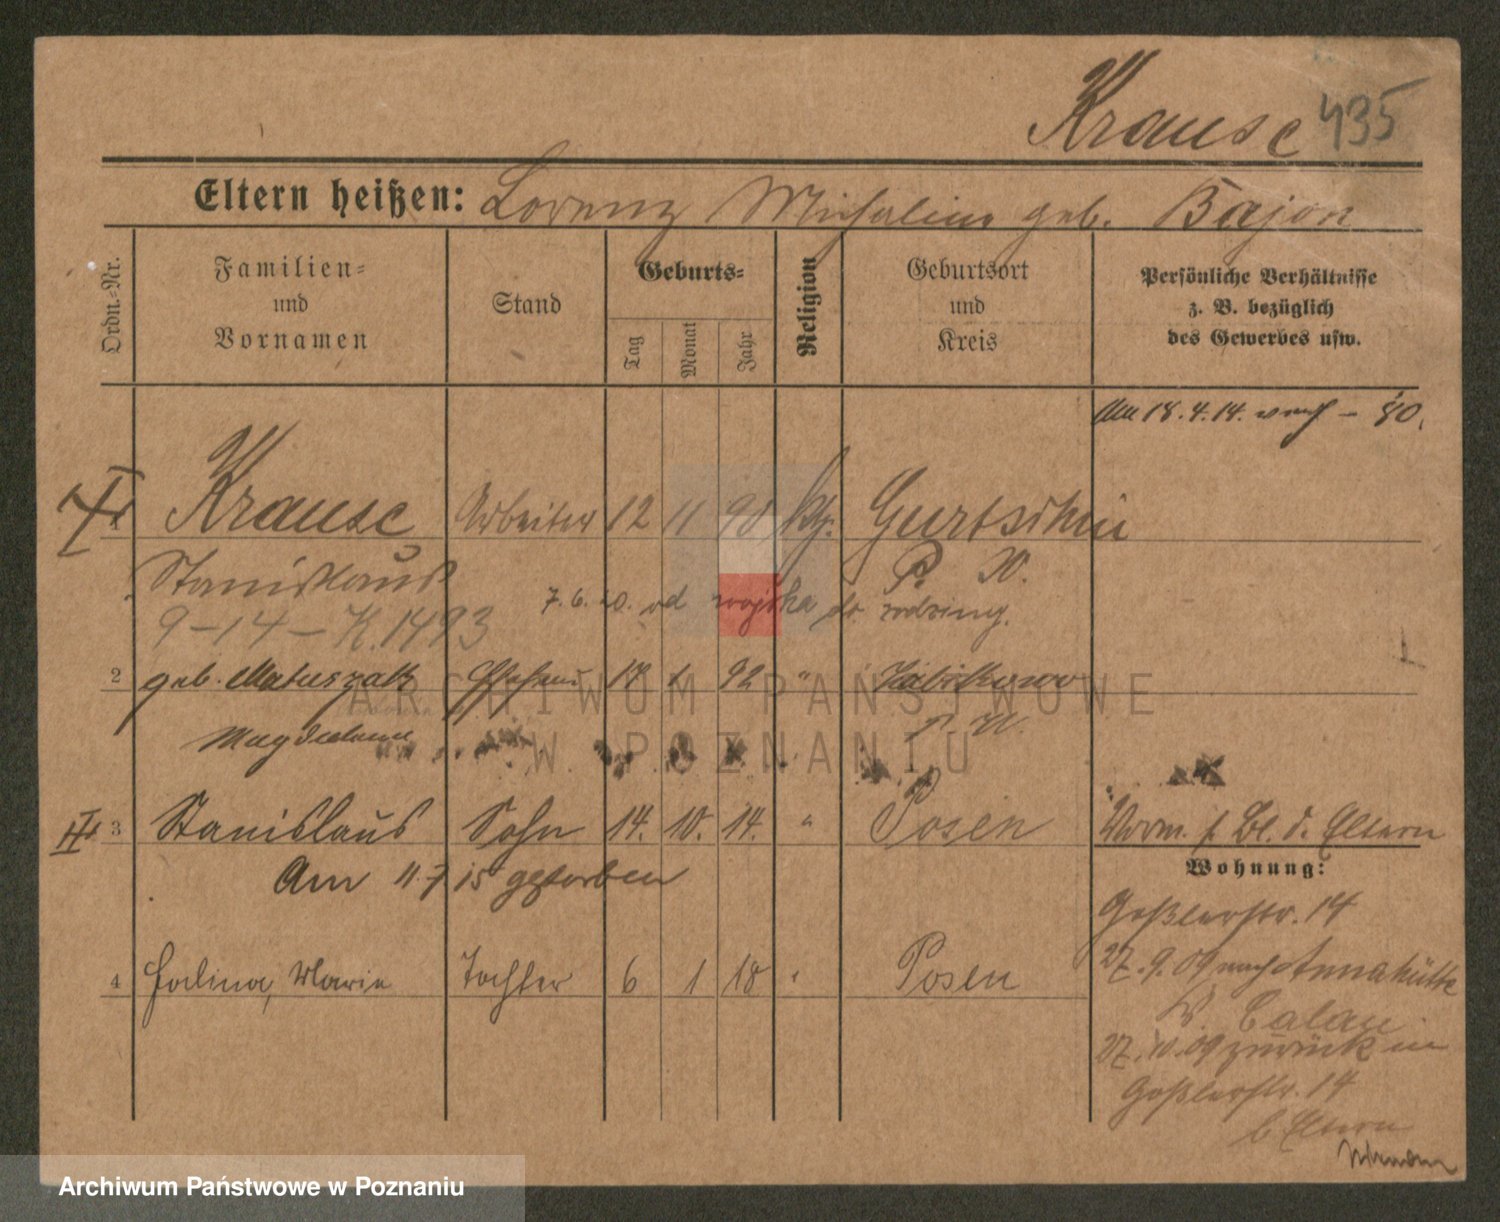 Krause 435
Eltern heißen: Lorenz Michaline geb. Bajon
Ordn.-Nr.
Familien-
und
Vornamen
Stand
Geburts-
Tag
Monat
Jahr
Religion
Geburtsort
und
Kreis
Persönliche Verhältnisse
z. B. bezüglich
des Gewerbes usw.
Am 18.4.14.
Krause Arbeiter 12 11 90 kth. Gurtschin
Stanislaus P. W.
9-14-K.1493
7.6.20. od wojska do rodziny.
2 geb. Matuszak Ehefrau 17 92 " Zabikowo
Magdalena P. W.
3 Stanislaus Sohn 14. 10. 14. " Posen Vorm. f. Bl. d. Eltern
Am 11.7 15 gestorben
Wohnung:
Goßlerstr. 14
27.9.09 nach Annahütte
4 Halina, Marie Tochter 6 1 18 " Posen
Kr. Calau
27.10.09 zurück in
Goßlerstr. 14
b Eltern
ARCHIWUM PAŃSTWOWE
W POZNANIU
Archiwum Państwowe w Poznaniu